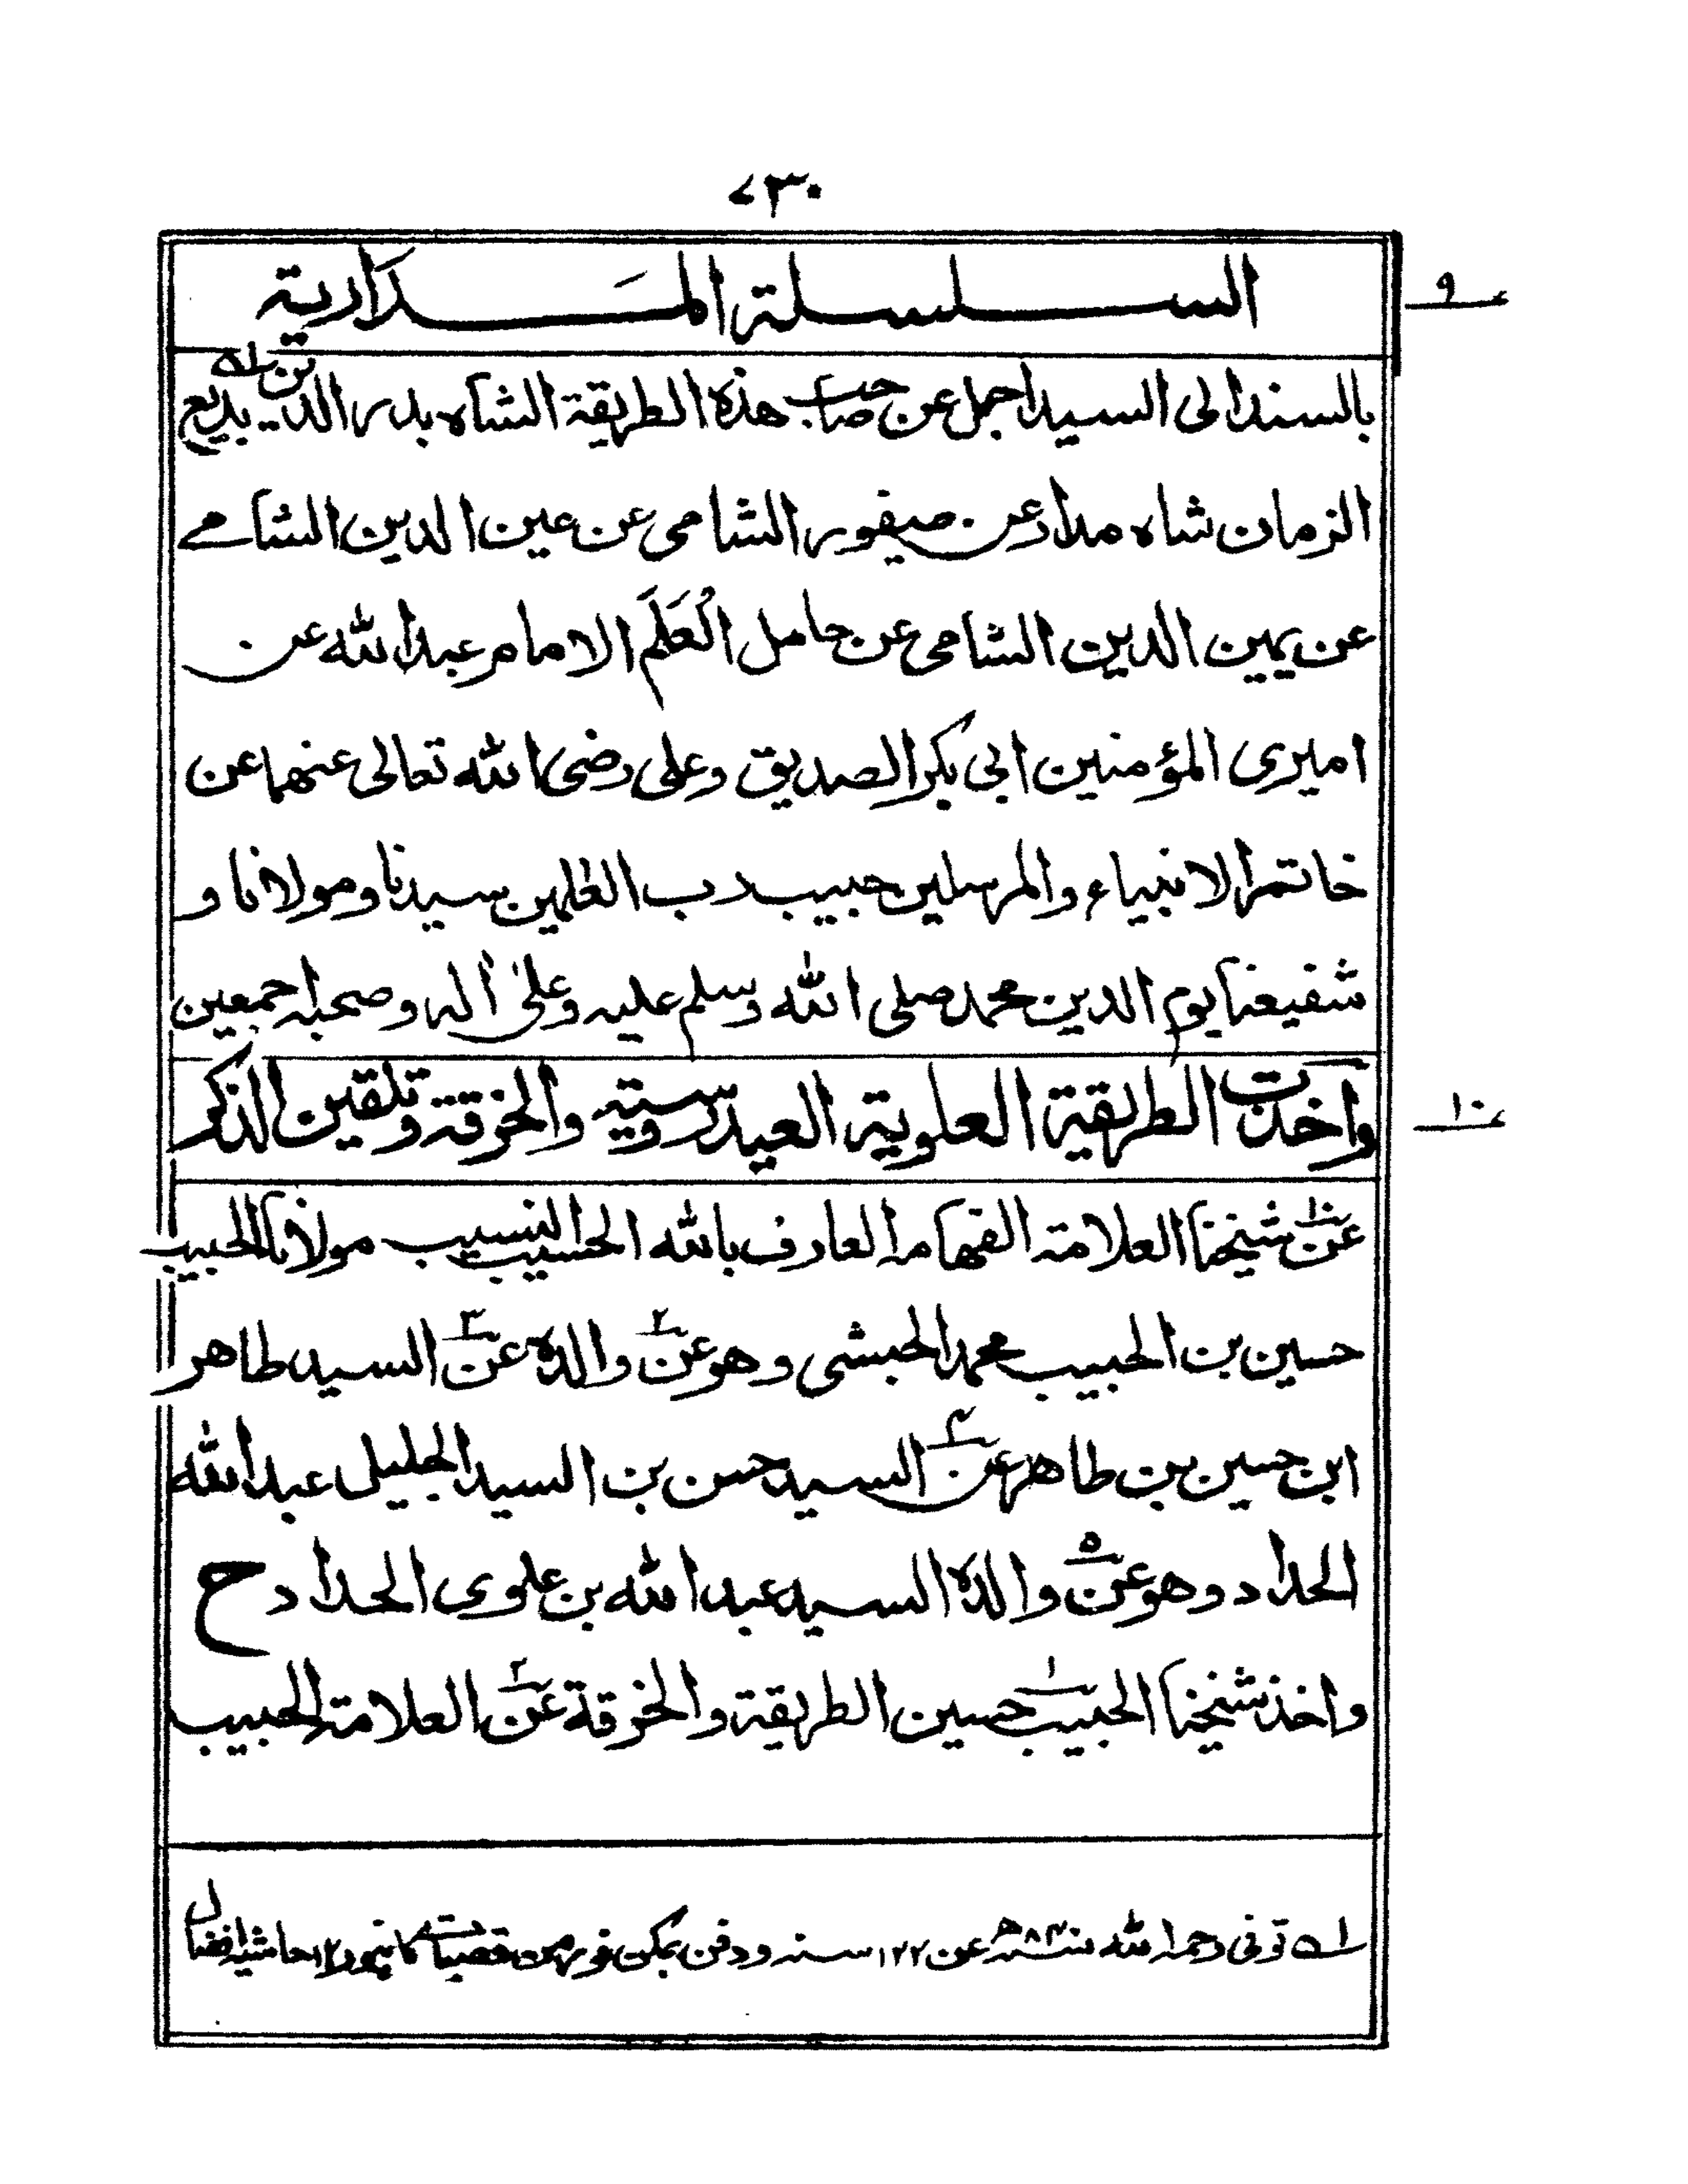 ۷۳۰
السلسلة المَدَارية
۹
بالسند الى السيد اجمل عن صاحب هذه الطريقة الشاه بدر الدين بديع
الزمان شاه مدار عن صيفور الشامى عن عين الدين الشامے
عن يمين الدين الشامى عن حامل الْعَلَم الامام عبد الله عن
اميرى المؤمنين ابى بكر الصديق وعلى رضى الله تعالى عنهما عن
خاتم الانبياء والمرسلين حبيب رب العٰلمين سيدنا ومولانا و
شفيعنا يوم الدين محمد صلى الله وسلم عليه وعلىٰ اٰله وصحبه اجمعين
واخذت الطريقة العلوية العيدروسية والخرقة وتلقين الذكر
۱۰
عن۱ شيخنا العلامة الفهامة العارف بالله الحسيب النسيب مولانا الحبيب
حسين بن الحبيب محمد الحبشى وهو عن۲ والده عن۳ السيد طاهر
ابن حسين بن طاهر عن۴ السيد حسن بن السيد الجليل عبد الله
الحداد وهو عن۵ والده السيد عبد الله بن علوى الحداد ح
واخذ شيخنا الحبيب۱ حسين الطريقة والخرقة عن۲ العلامة الحبيب
له توفى رحمه الله سنة ۸۴۰ه عن ۱۲۲ سنة ودفن بمكن فور من قصبات كانپور ۱۲ حاشيه افضال